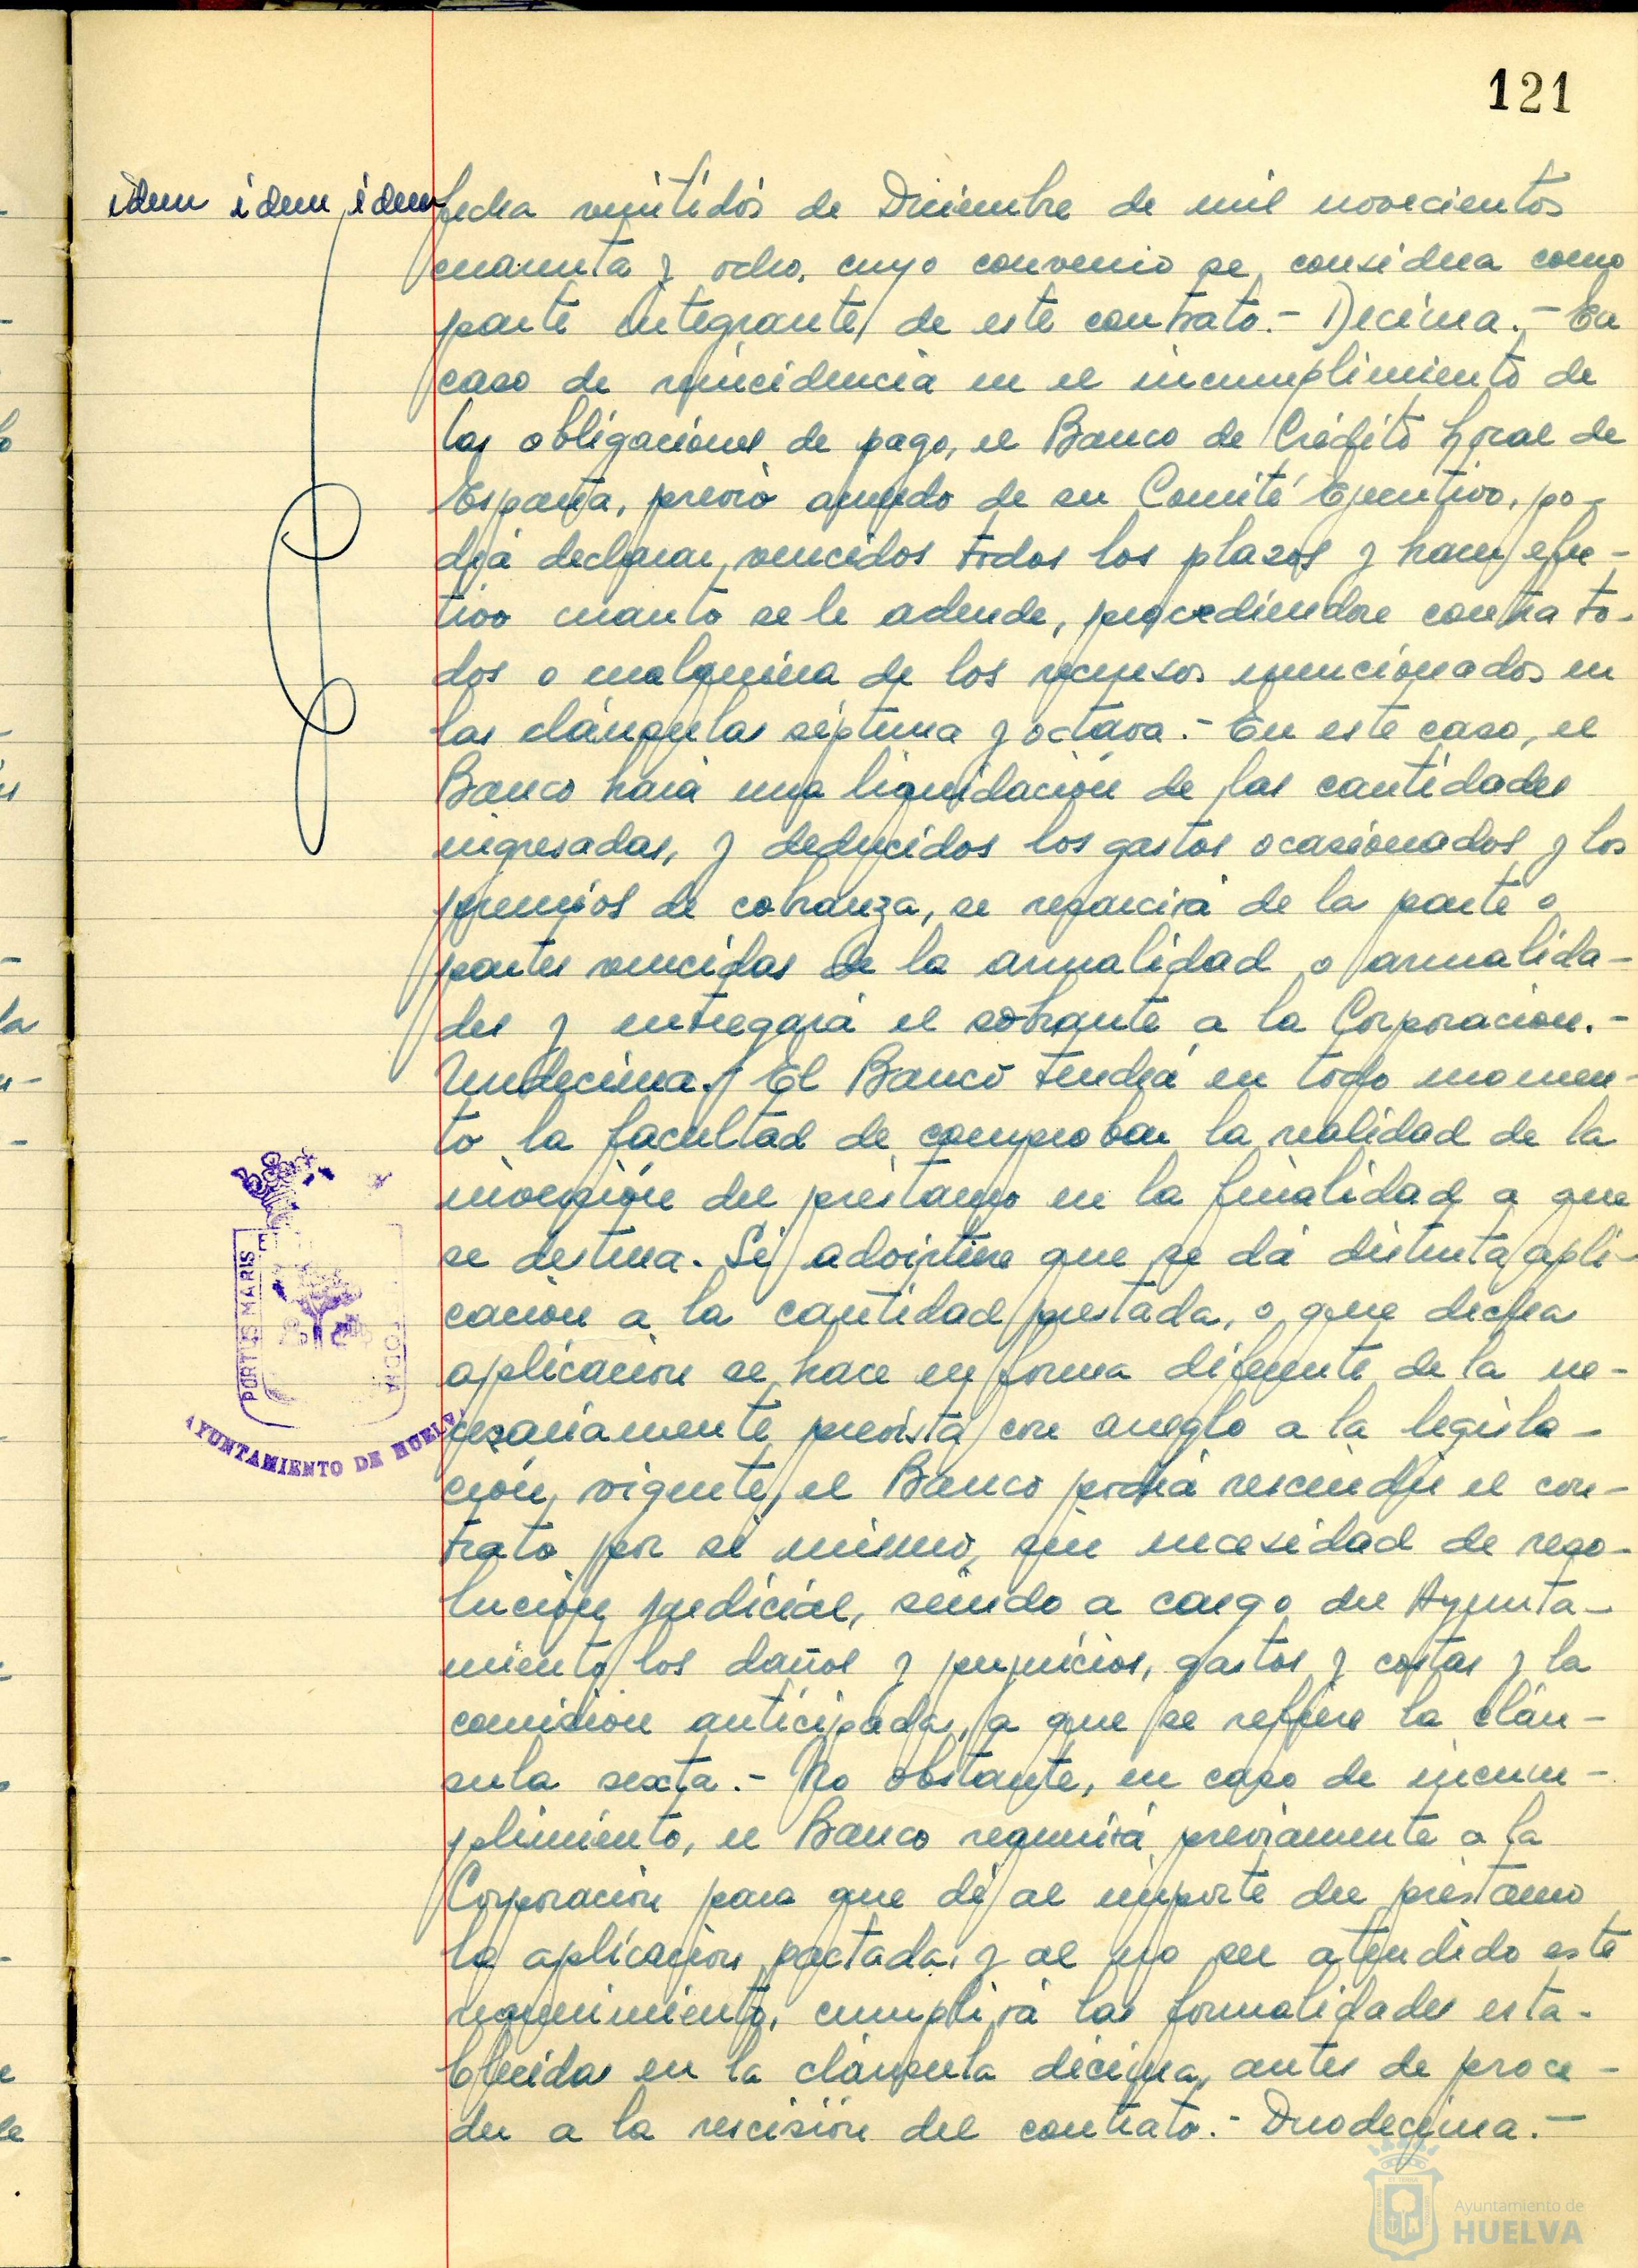 121
idem idem idem
fecha veintidós de Diciembre de mil novecientos
cuarenta y ocho, cuyo convenio se considera como
parte integrante de este contrato.- Décima.- En
caso de reincidencia en el incumplimiento de
las obligaciones de pago, el Banco de Crédito Local de
España, previo acuerdo de su Comité Ejecutivo, po-
drá declarar vencidos todos los plazos y hacer efec-
tivo cuanto se le adeude, procediendose contra to-
dos o cualquiera de los recursos mencionados en
las cláusulas séptima y octava.- En este caso, el
Banco hará una liquidación de las cantidades
ingresadas, y deducidos los gastos ocasionados y los
premios de cobranza, se resarcirá de la parte o
partes vencidas de la anualidad o anualida-
des y entregará el sobrante a la Corporación.-
Undecima.- El Banco tendrá en todo momen-
to la facultad de comprobar la realidad de la
inversión del préstamo en la finalidad a que
se destina. Si advirtiese que se dá distinta apli-
cación a la cantidad prestada, o que dicha
aplicación se hace en forma diferente de la ne-
cesariamente prevista con arreglo a la legisla-
ción vigente, el Banco podrá rescindir el con-
trato por si mismo, sin necesidad de reso-
lución judicial, siendo a cargo del Ayunta-
miento los daños y perjuicios, gastos y costas y la
comisión anticipada, a que se refiere la cláu-
sula sexta.- No obstante, en caso de incum-
plimiento, el Banco requerirá previamente a la
Corporación para que dé al importe del préstamo
la aplicación pactada, y al no ser atendido este
requerimiento, cumplirá las formalidades esta-
blecidas en la cláusula décima, antes de proce-
der a la rescisión del contrato.- Duodecima.-
PORTUS MARIS
AYUNTAMIENTO DE HUELVA
Ayuntamiento de
HUELVA